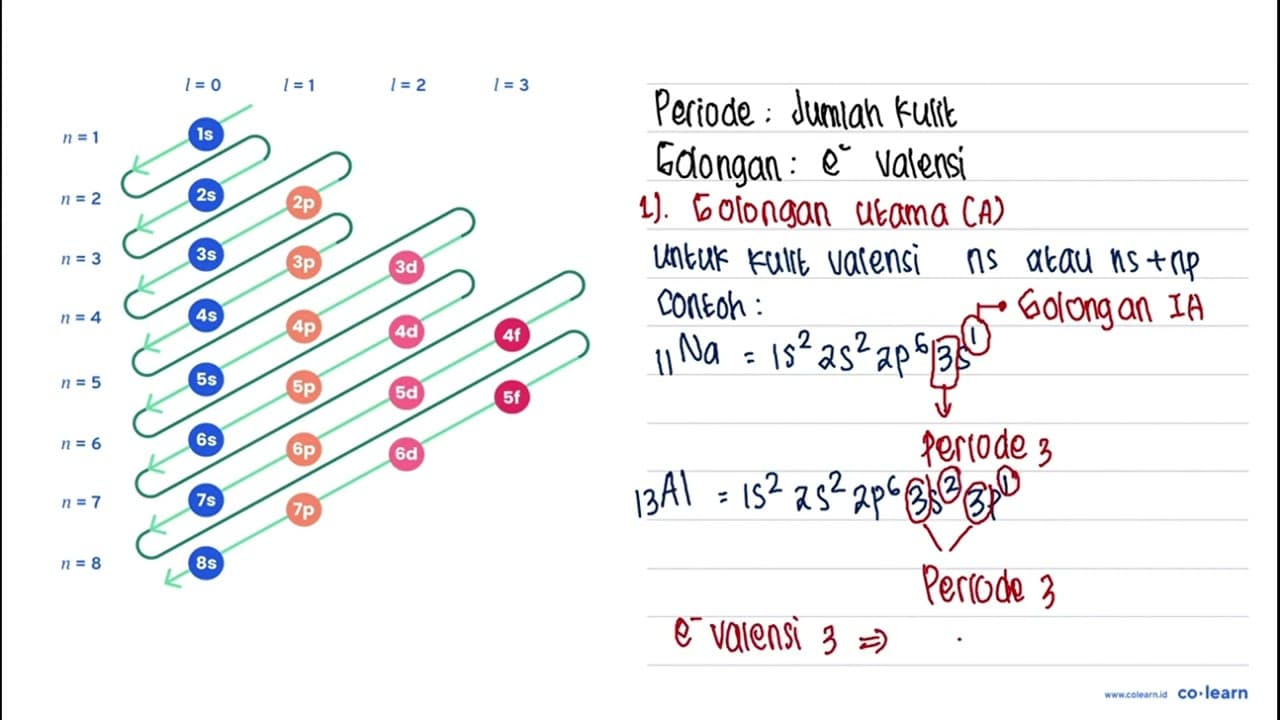 l = 0 l = 1 l = 2 l = 3
n = 1 1s
n = 2 2s 2p
n = 3 3s 3p 3d
n = 4 4s 4p 4d 4f
n = 5 5s 5p 5d 5f
n = 6 6s 6p 6d
n = 7 7s 7p
n = 8 8s
Periode : Jumlah Kulit
Golongan : e⁻ Valensi
1). Golongan utama (A)
untuk kulit valensi ns atau ns + np
Contoh : Golongan IA
₁₁Na = 1s² 2s² 2p⁶ 3s¹
Periode 3
₁₃Al = 1s² 2s² 2p⁶ 3s² 3p¹
Periode 3
e⁻ valensi 3 ⇒
www.colearn.id co·learn